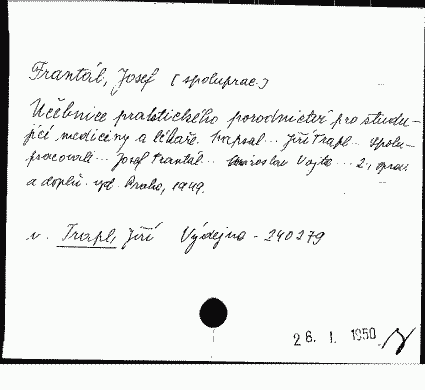 Frantál, Josef (spoluprac.)
Učebnice praktického porodnictví pro studu-
jící mediciny a lékaře. Napsal... Jiří Trapl... Spolu-
pracovali... Josef Frantál... Miroslav Vojta... 2., oprac.
a dopln. vyd. Praha, 1949.
v. Trapl, Jiří Výdejna - 240279
26. I. 1950